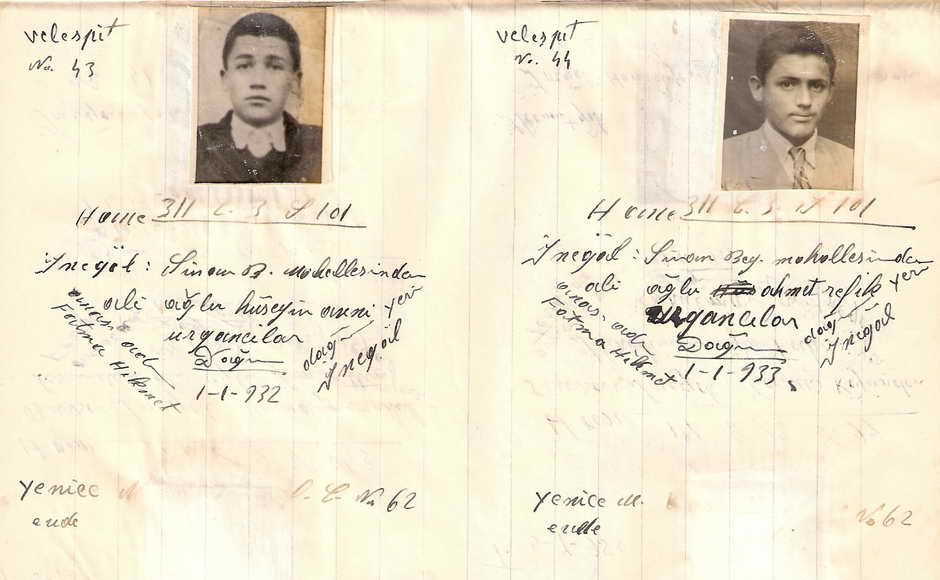 velespit
No. 43
Hane 311 C. 3 S 101
İnegöl: Sinan B. mahallesinden
ali oğlu hüseyin avni
urgancılar
anası adı
Fatma Hikmet
Doğu
doğ yeri
İnegöl
1-1-932
Yenice
No 62
velespit
No. 44
Hane 311 C. 3 S 101
İnegöl: Sinan Bey. mahallesinden
ali oğlu ahmet refik
urgancılar
anası adı
Fatma Hikmet
Doğu
doğ yeri
İnegöl
1-1-933
Yenice M.
No 62